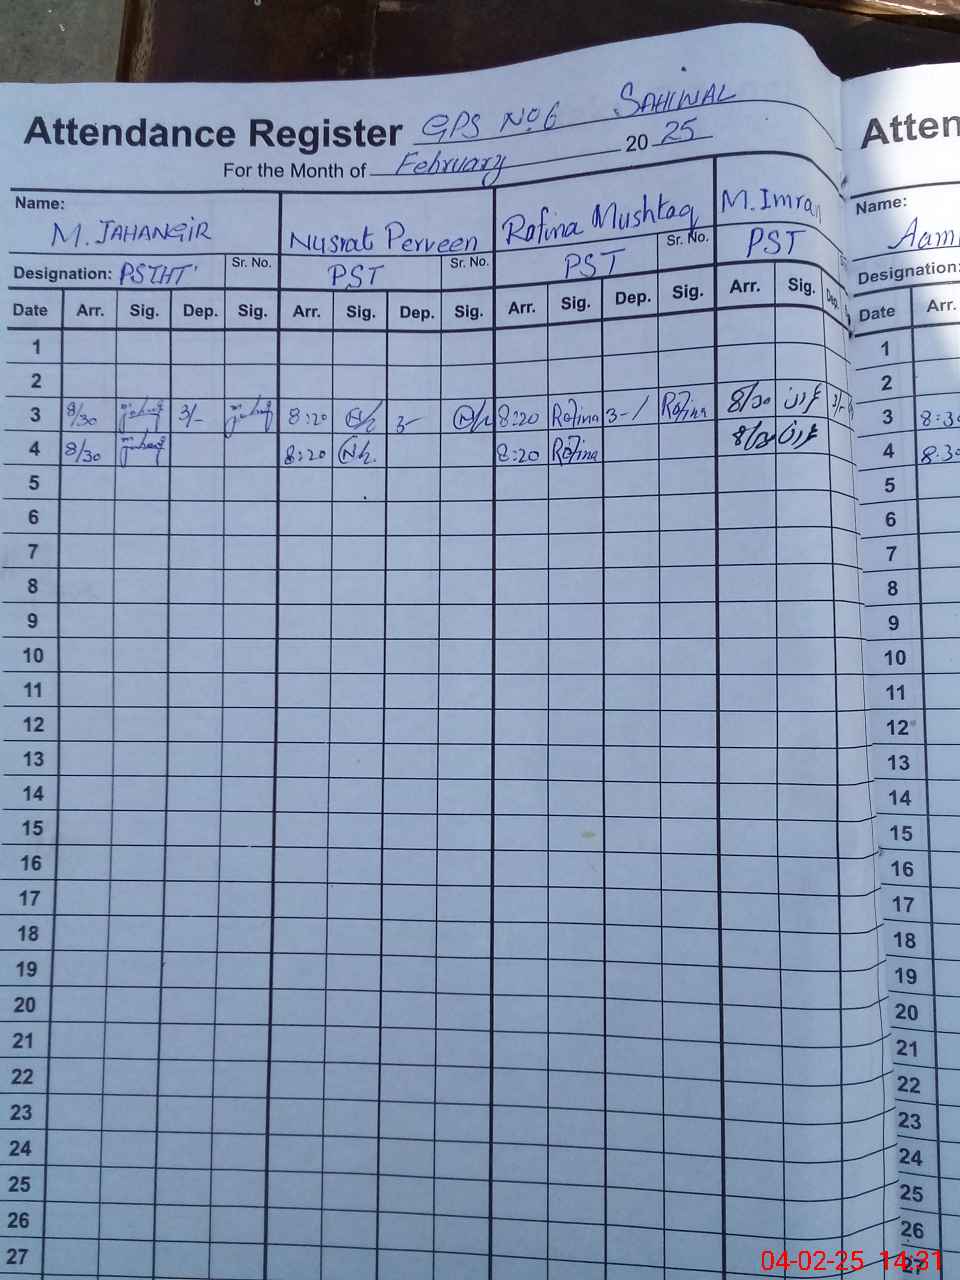 Attendance Register GPS No6 SAHIWAL
For the Month of February 2025
Name: M. JAHANGIR Nusrat Perveen Rofina Mushtaq M. Imran
Designation: PSTHT Sr. No. PST Sr. No. PST Sr. No. PST
Date Arr. Sig. Dep. Sig. Arr. Sig. Dep. Sig. Arr. Sig. Dep. Sig. Arr. Sig. Dep.
1
2
3 8/30 3/- 8:20 3- 8:20 Rofina 3-/ Rofina 8/30 3/-
4 8/30 8:20 8:20 Rofina
5
6
7
8
9
10
11
12
13
14
15
16
17
18
19
20
21
22
23
24
25
26
27
Atten
Name:
Aam
Designation:
Date Arr.
1
2
3 8:30
4 8:30
5
6
7
8
9
10
11
12
13
14
15
16
17
18
19
20
21
22
23
24
25
26
27
04-02-25 14:31